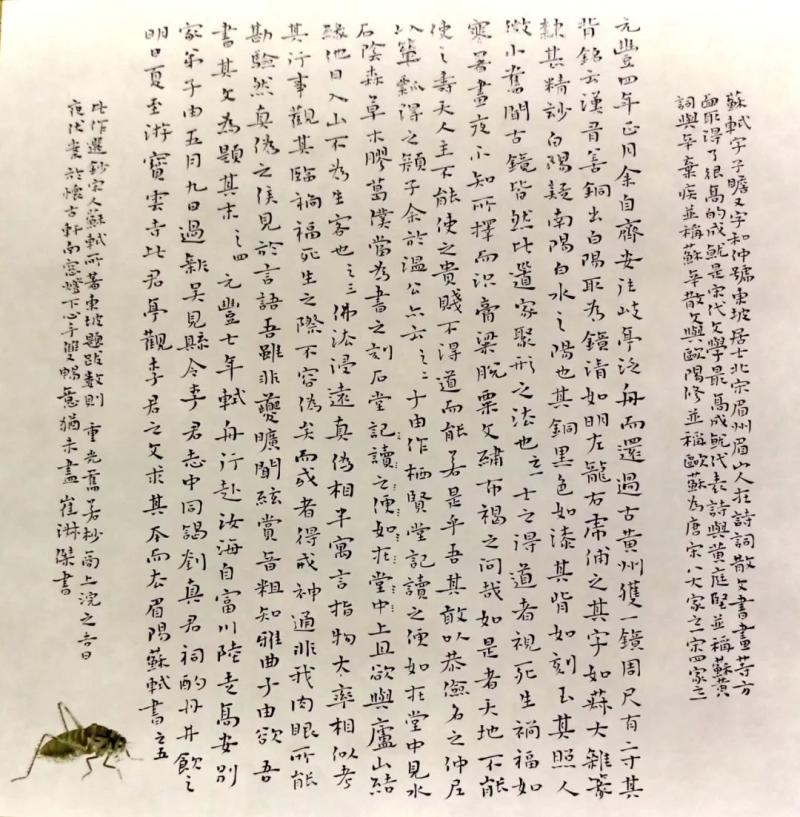 蘇軾字子瞻又字和仲號東坡居士北宋眉州眉山人在詩詞散文書畫等方
面取得了很高的成就是宋代文學最高成就代表詩與黃庭堅並稱蘇黃
詞與辛棄疾並稱蘇辛散文與歐陽修並稱歐蘇為唐宋八大家之一宋四家之一
元豐四年正月余自齊安往岐亭泛舟而還過古黃州獲一鏡周尺有二寸其
背銘云漢有善銅出白陽取為鏡清如明左龍右虎俌之其字如菽大雜篆
隸甚精妙白陽疑南陽白水之陽也其銅黑色如漆其背如刻玉其照人
微小舊聞古鏡皆然此道家聚形之法也之一士之得道者視死生禍福如
寒暑晝夜不知所擇而況膏粱脫粟文繡布褐之間哉如是者天地不能
使之壽夭人主不能使之貴賤不得道而能若是乎吾其敢以恭儉名之仲尼
以簞瓢得之顏子余於溫公亦云之二子由作栖賢堂記讀之便如在堂中見水
石陰森草木膠葛僕當為書之刻石堂記讀之便如在堂中上且欲與廬山結
緣他日入山不為生客也之三佛法浸遠真偽相半寓言指物大率相似考
其行事觀其臨禍福死生之際不容偽矣而或者得戒神通非我肉眼所能
勘驗然真偽之候見於言語吾雖非夔曠聞絃賞音粗知雅曲子由欲吾
書其文為題其末之四元豐七年軾舟行赴汝海自富川陸走高安別
家弟子由五月九日過新吳見縣令李君志中同謁劉真君祠酌丹井飲之
明日夏至游寶雲寺此君亭觀李君之文求其本而去眉陽蘇軾書之五
此作選鈔宋人蘇軾所著東坡題跋數則 重光 商上浣之吉日
夜伏案於懷古軒南窗燈下心手雙暢意猶未盡崔淋傑書